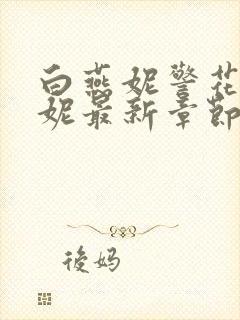 白燕妮警花
妮最新章節
後妈